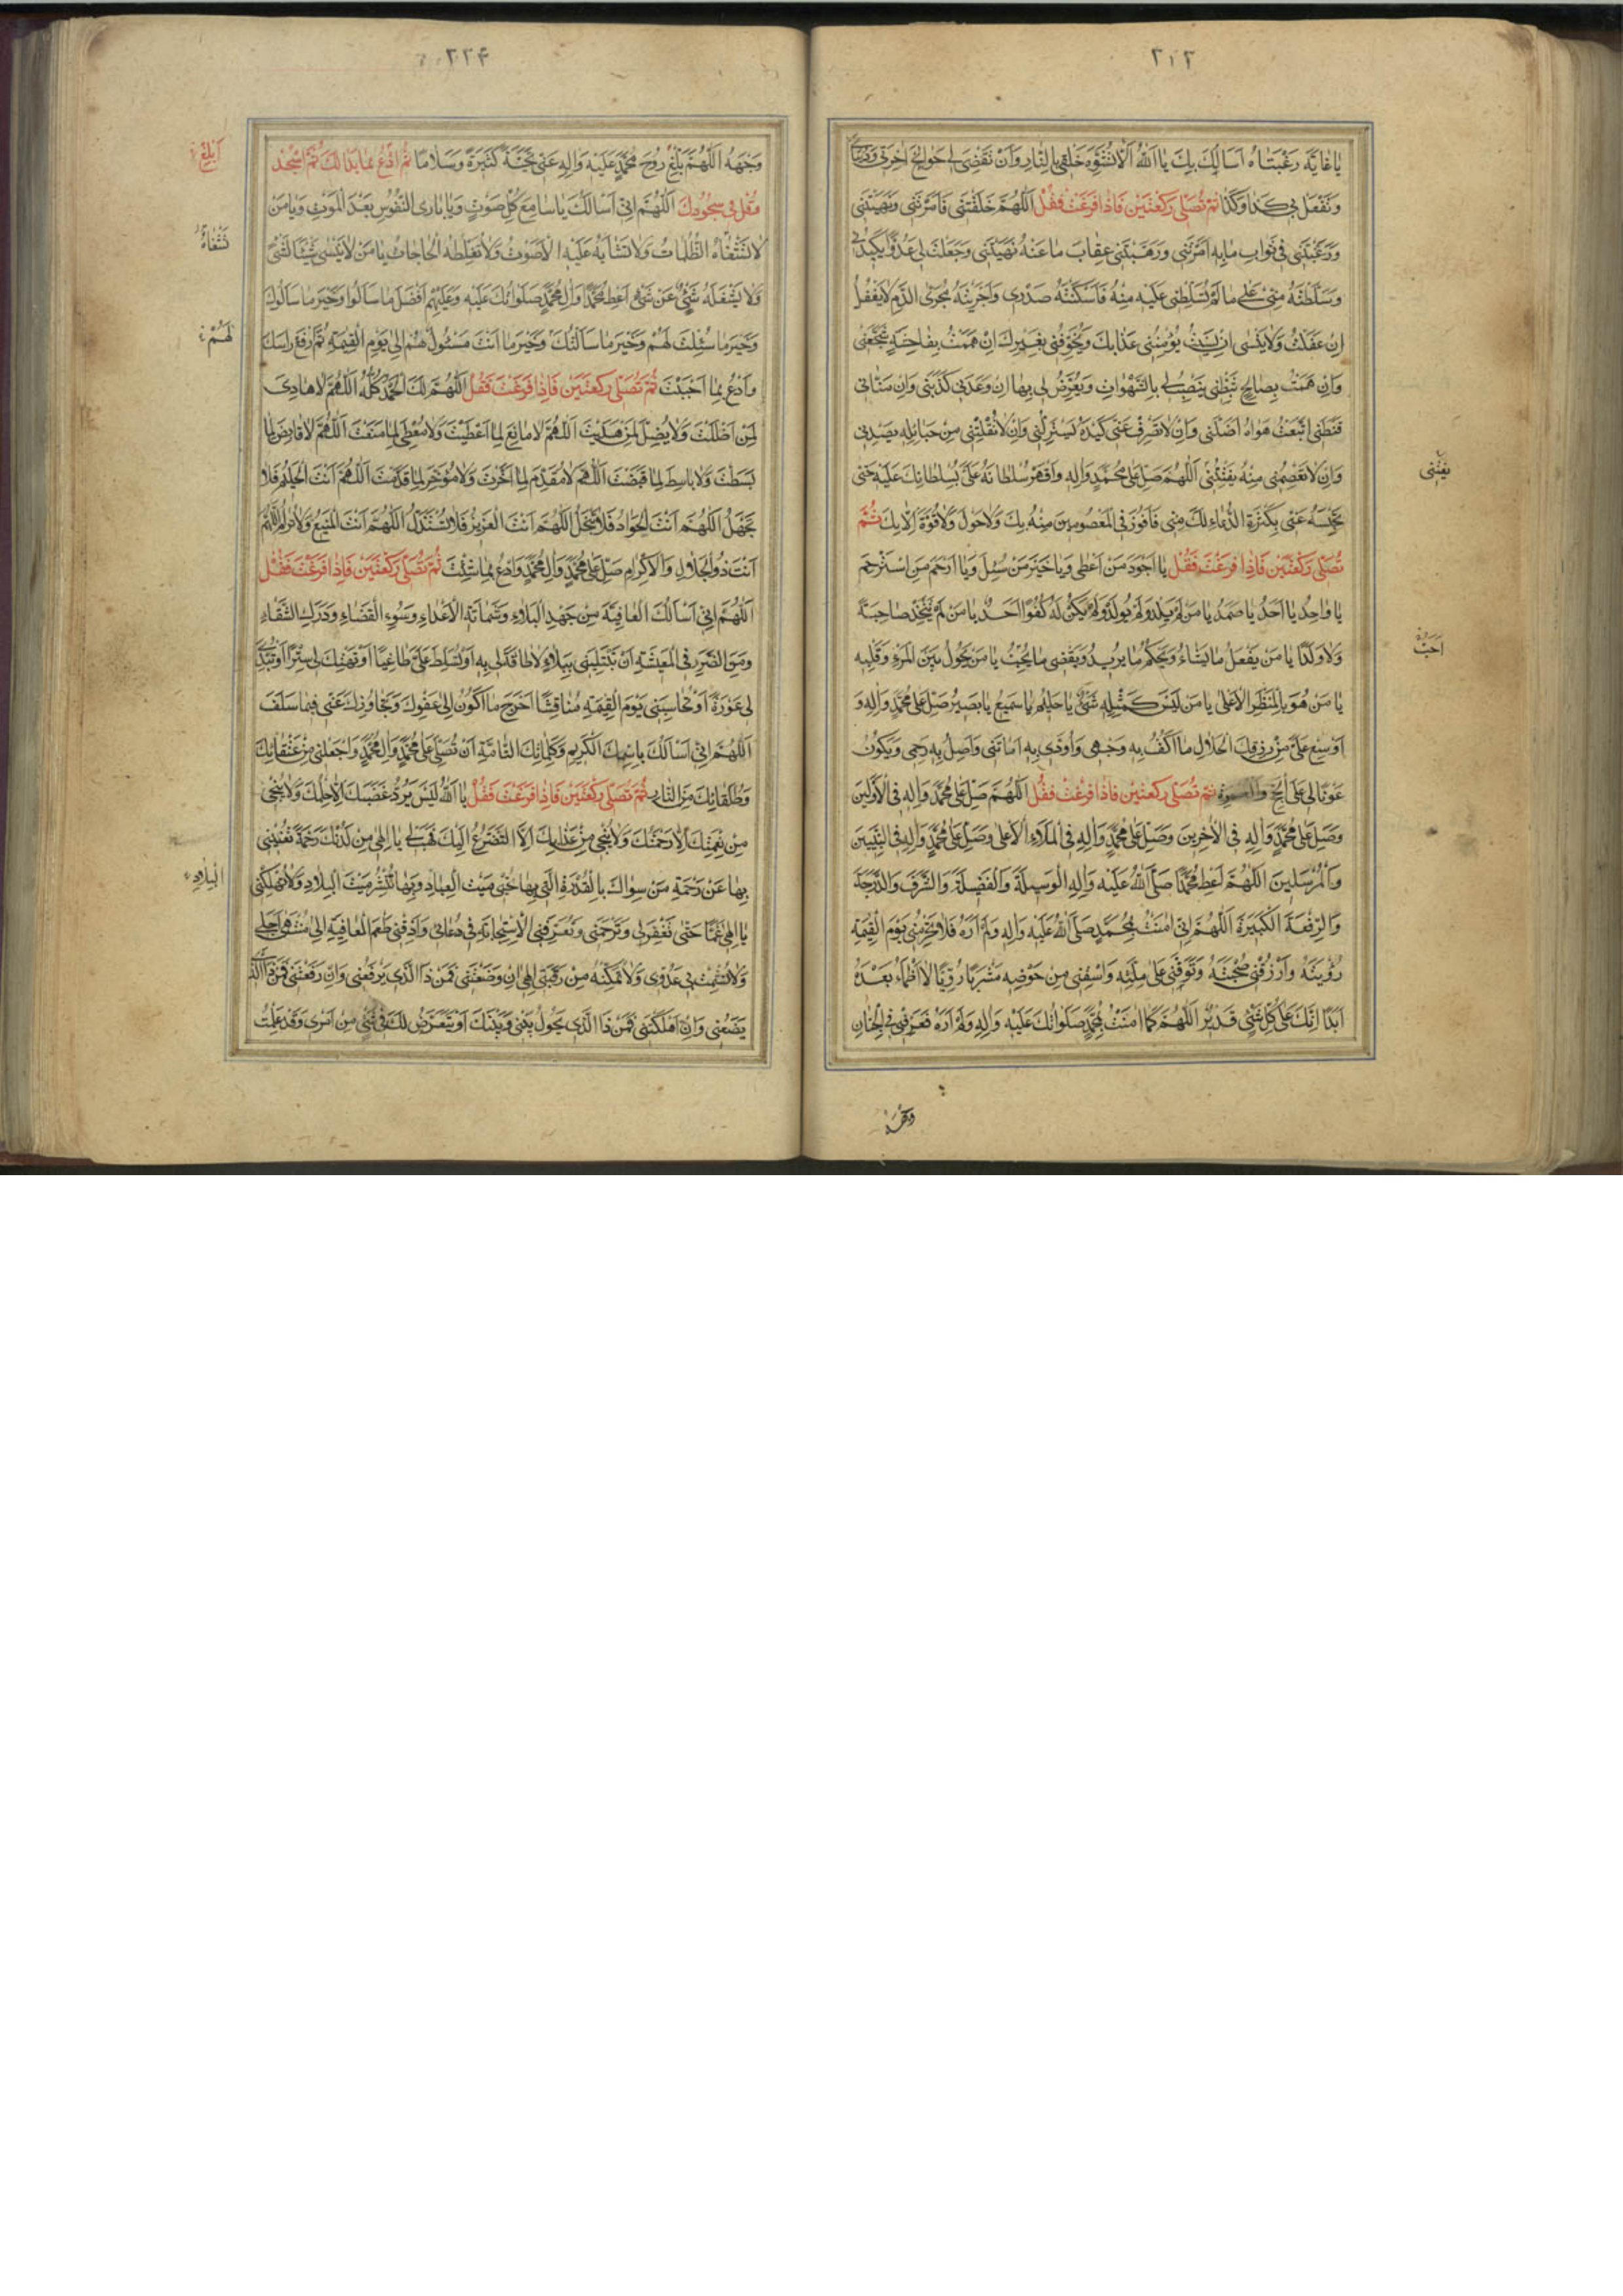 ۲۱۳
يا غاية رغبتاه اسالك بك يا الله الا تشوه خلقي بالنار وان تقضي لي حوائج اخرتي ودنياي
وتفعل بي كذا وكذا ثم تصلي ركعتين فاذا فرغت فقل اللهم خلقتني فامرتني ونهيتني
ورغبتني في ثواب ما به امرتني ورهبتني عقاب ما عنه نهيتني وجعلت لي عدوا يكيدني
وسلطته مني على ما لم تسلطني عليه منه فاسكنته صدري واجريته مجرى الدم لا يغفل
ان غفلت ولا ينسى ان نسيت يؤمنني عذابك ويخوفني بغيرك ان هممت بفاحشة شجعني
وان هممت بصالح ثبطني ينصب لي بالشهوات ويعرض لي بها ان وعدني كذبني وان مناني
قنطني اتبعت هواه اضلني وان لا تصرف عني كيده يستزلني وان لا تفلتني من حبائله يصدني
وان لا تعصمني منه يفتنني اللهم صل على محمد واله واقهر سلطانه علي بسلطانك عليه حتى
تحبسه عني بكثرة الدعاء لك مني فافوز في المعصومين منه بك ولا حول ولا قوة الا بك ثم
تصلي ركعتين فاذا فرغت فقل يا اجود من اعطى ويا خير من سئل ويا ارحم من استرحم
يا واحد يا احد يا صمد يا من لم يلد ولم يولد ولم يكن له كفوا احد يا من لم يتخذ صاحبة
ولا ولدا يا من يفعل ما يشاء ويحكم ما يريد ويقضي ما يحب يا من يحول بين المرء وقلبه
يا من هو بالمنظر الاعلى يا من ليس كمثله شئ يا حليم يا سميع يا بصير صل على محمد واله و
اوسع علي من رزقك الحلال ما اكف به وجهي واؤدي به امانتي واصل به رحمي ويكون
عونا لي على الحج والعمرة ثم تصلي ركعتين فاذا فرغت فقل اللهم صل على محمد واله في الاولين
وصل على محمد واله في الاخرين وصل على محمد واله في الملاء الاعلى وصل على محمد واله في النبيين
والمرسلين اللهم اعط محمدا صلى الله عليه واله الوسيلة والفضيلة والشرف والدرجة
والرفعة الكبيرة اللهم اني امنت بمحمد صلى الله عليه واله ولم اره فلا تحرمني يوم القيمة
رؤيته وارزقني صحبته وتوفني على ملته واسقني من حوضه مشربا رويا لا اظماء بعده
ابدا انك على كل شئ قدير اللهم كما امنت بمحمد صلواتك عليه واله ولم اره فعرفني في الجنان
يفتني
احب
وجهه
۲۲۴
وجهه اللهم بلغ روح محمد عليه واله عني تحية كثيرة وسلاما ثم ادع بما بدا لك ثم اسجد
وقل في سجودك اللهم اني اسالك يا سامع كل صوت ويا بارئ النفوس بعد الموت ويا من
لا تتغشاه الظلمات ولا تشابه عليه الاصوت ولا تغلطه الحاجات يا من لا ينسى شيئا لشئ
ولا يشغله شئ عن شئ اعط محمدا وال محمد صلواتك عليه وعليهم افضل ما سالوا وخير ما سالوك
وخير ما سئلت لهم وخير ما سالتك وخير ما انت مسئول لهم الى يوم القيمة ثم رفع راسك
وادع بما احببت ثم تصلي ركعتين فاذا فرغت فقل اللهم لك الحمد كله اللهم لا هادي
لمن اضللت ولا مضل لمن هديت اللهم لا مانع لما اعطيت ولا معطي لما منعت اللهم لا قابض لما
بسطت ولا باسط لما قبضت اللهم لا مقدم لما اخرت ولا مؤخر لما قدمت اللهم انت الحليم فلا
تجهل اللهم انت الجواد فلا تبخل اللهم انت العزيز فلا تستذل اللهم انت المنيع ولا ترام اللهم
انت ذو الجلال والاكرام صل على محمد وال محمد وادع بما شئت ثم تصلي ركعتين فاذا فرغت فقل
اللهم اني اسالك العافية من جهد البلاء وشماتة الاعداء وسوء القضاء ودرك الشقاء
ومن الضرر في المعيشة ان تبتليني ببلاء لا طاقة لي به او تسلط علي طاغيا او تهتك لي سترا او تبدي
لي عورة او تحاسبني يوم القيمة مناقشا احوج ما اكون الى عفوك وتجاوزك عني فيما سلف
اللهم اني اسالك باسمك الكريم وكلماتك التامة ان تصلي على محمد وال محمد واجعلني من عتقائك
وطلقائك من النار ثم تصلي ركعتين فاذا فرغت فقل يا الله ليس يرد غضبك الا حلمك ولا ينجي
من نقمتك الا رحمتك ولا ينجي من عذابك الا التضرع اليك فهب لي يا الهي من لدنك رحمة تغنيني
بها عن رحمة من سواك بالقدرة التي بها تحيي ميت العباد وبها تنشر ميت البلاد ولا تهلكني
يا الهي غما حتى تغفر لي وترحمني وتعرفني الاستجابة في دعائي واذقني طعم العافية الى منتهى اجلي
ولا تشمت بي عدوي ولا تمكنه من رقبتي الهي ان وضعتني فمن ذا الذي يرفعني وان رفعتني فمن ذا الذي
يضعني وان اهلكتني فمن ذا الذي يحول بيني وبينك او يتعرض لك في شئ من امري وقد علمت
ابلغ
تغشاه
لهم
البلاد